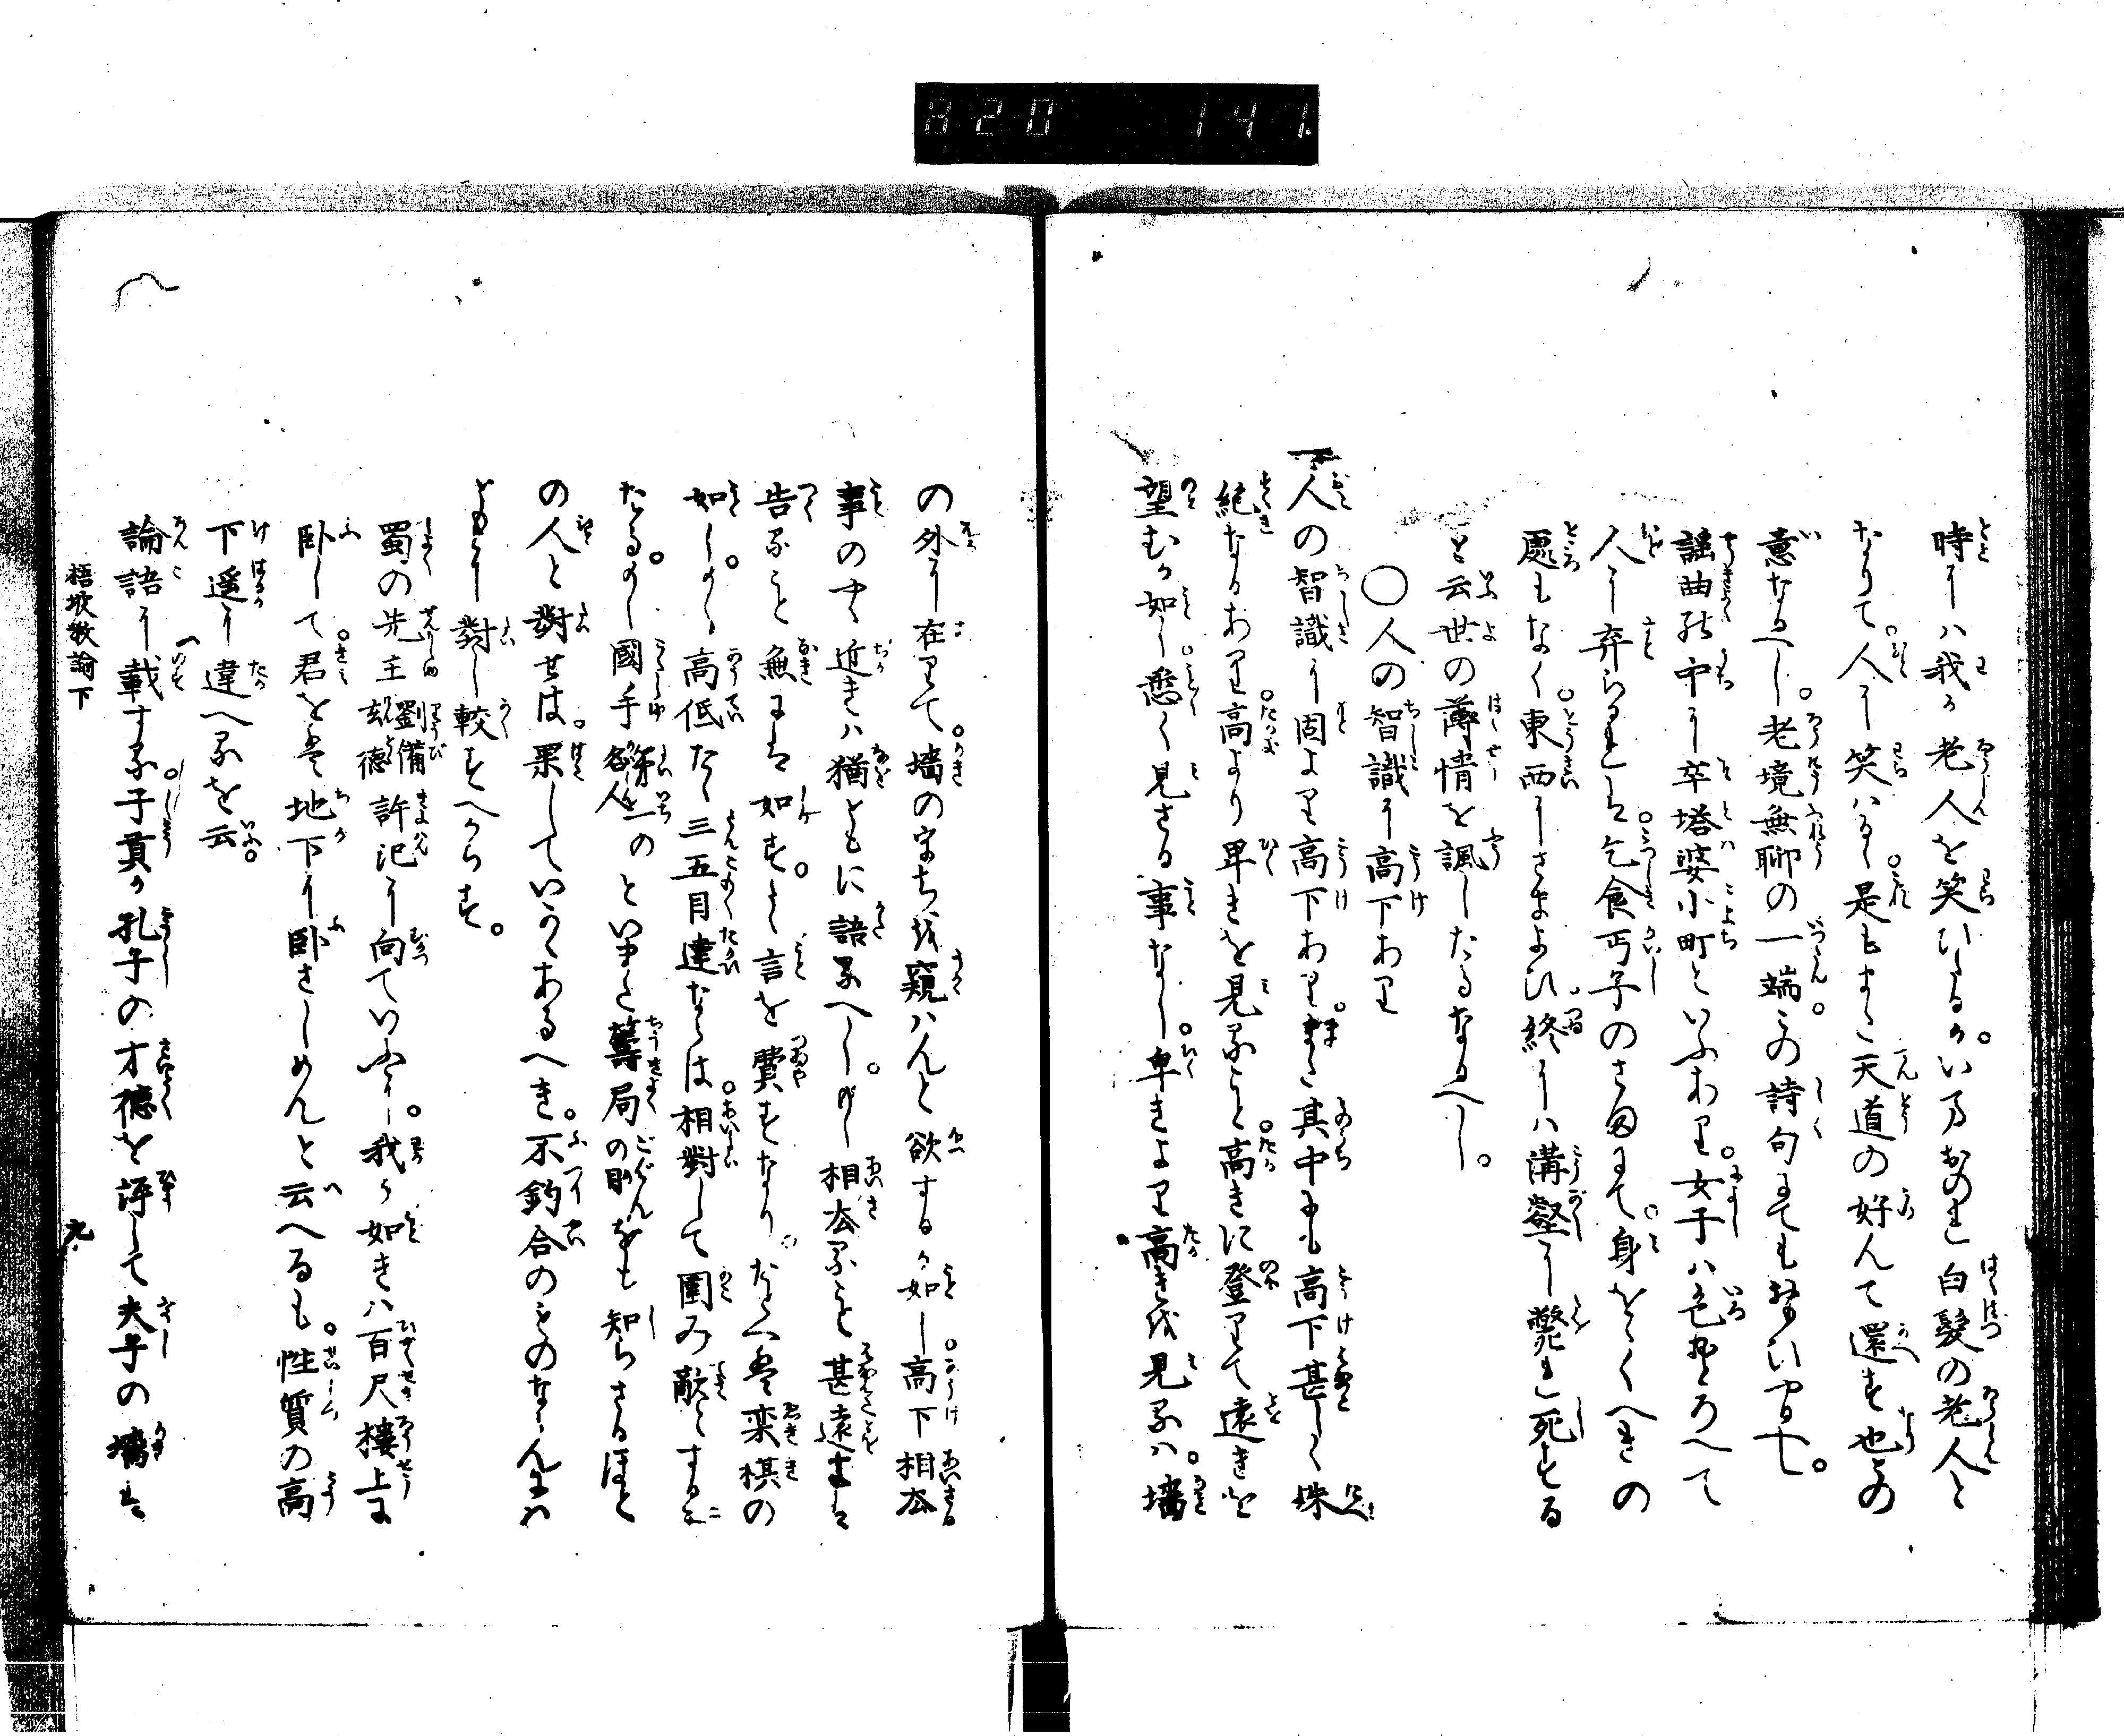 820 141
時には我か老人を笑ひたるか。いま おのれ白髪の老人と
なりて。人に笑はる。是もまた天道の好んて還す也との
意なるへし。老境無聊の一端この詩句にても
謡曲の中に卒塔婆小町といふあり。女子は色おとろへて
人に弃られては乞食丐子のさまにて。身をおくへきの
處もなく。東西にさまよひ終には溝壑に斃れ死する
と云世の薄情を諷したるなるへし。
〇人の智識に高下あり
人の智識に固より高下あり。また其中にも高下甚しく殊
絶なるあり高より卑きを見ること。高きに登りて遠きを
望むか如し悉く見さる事なし。卑きより高きを見るは。墻
の外に在りて。墻の中を窺はんと欲するか如し。高下相去
事の近きは猶ともに語るへし。もし相去ること甚遠きは
告ること無きに如す。言を費すなり。たとへは奕棋の
如し。もし高低たゝ三五目違ならは。相對して圍み敵とするに
たる。もし國手第一の名人といまた籌局の をも知らさるほと
の人と對せは。果していかゝあるへき。不釣合のものならんには
ともに對し較すへからす。
蜀の先主劉備玄德許汜に向ていふに。我か如きは百尺樓上に
臥して。君をは地下に臥さしめんと云へるも。性質の高
下遥に違へるを云。
論語に載する。子貢か孔子の才德を評して夫子の墻は
梧坡教諭下
九